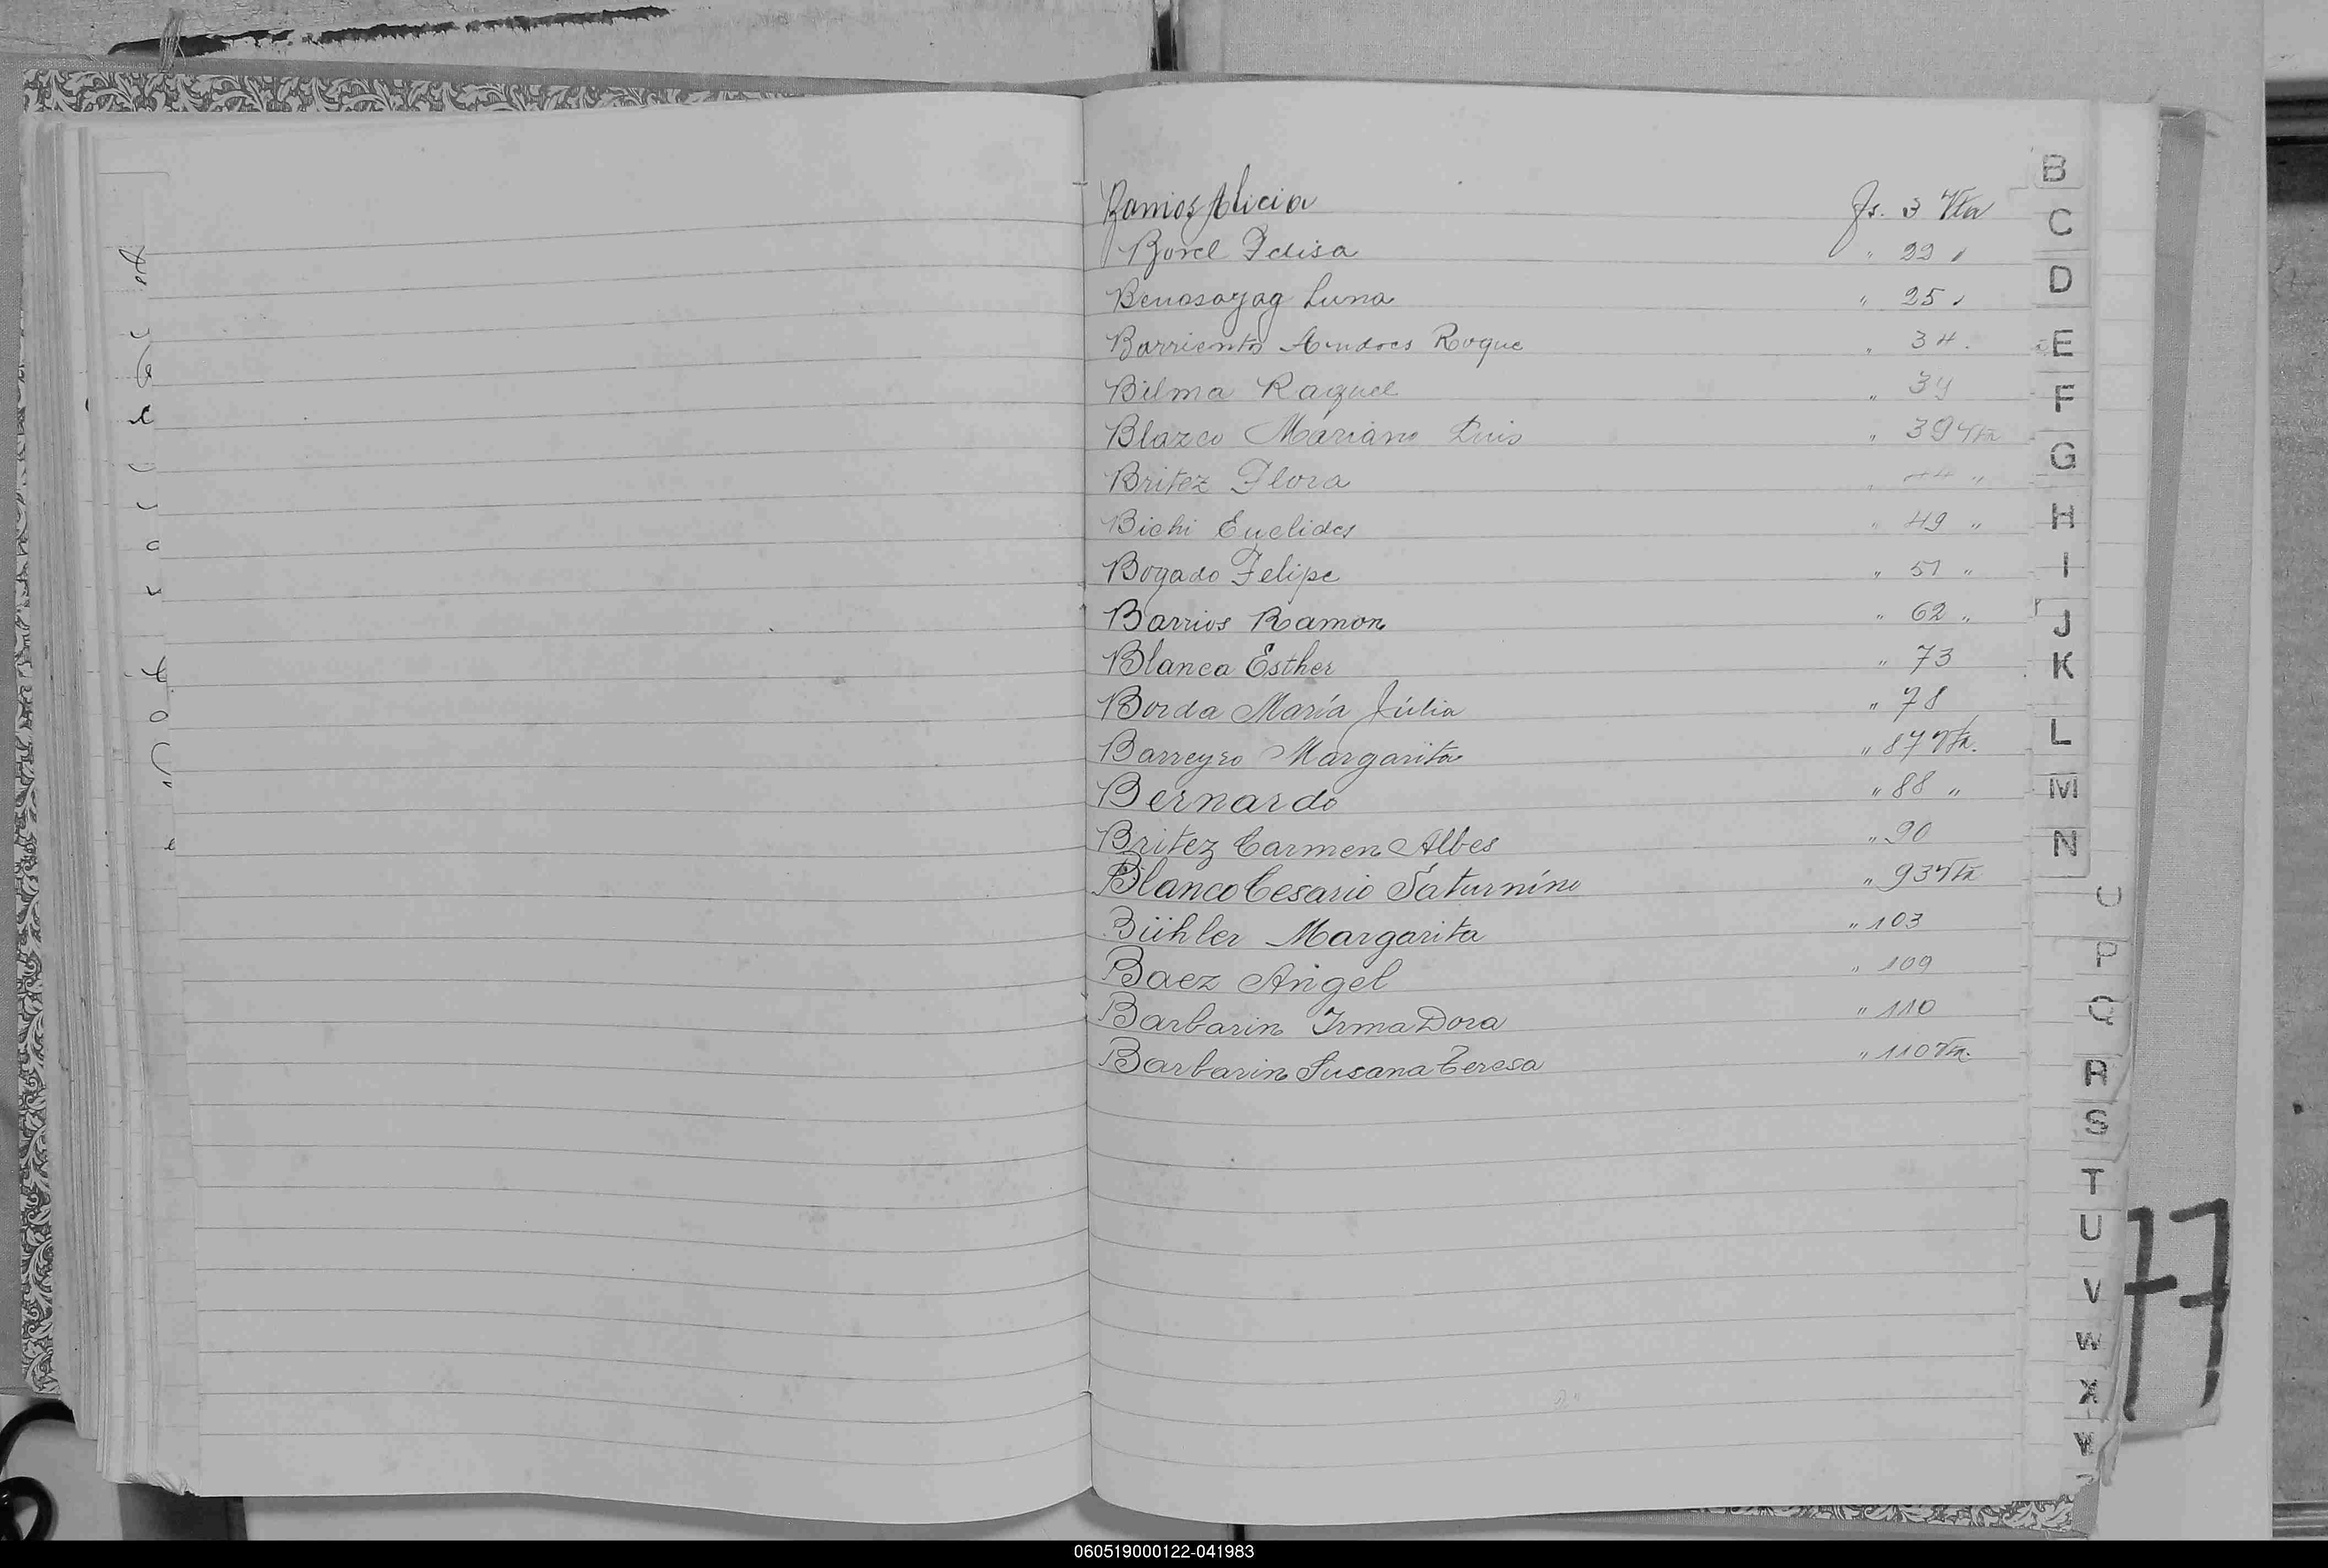 Barrios Alicia Fs. 3 Vta
Borel Felisa " 22 "
Benasayag Luna " 25 "
Barrientos Andres Roque " 34
Bilma Raquel " 34
Blazco Mariano Luis " 39 Vta
Britez Flora " 44 "
Bichi Euclides " 49 "
Bogado Felipe " 51 "
Barrios Ramon " 62 "
Blanca Esther " 73
Borda María Júlia " 78
Barreyro Margarita " 87 Vta.
Bernardo " 88 "
Britez Carmen Albes " 90
Blanco Cesario Saturnino " 93 Vta
Bühler Margarita " 103
Baez Angel " 109
Barbarin Irma Dora " 110
Barbarin Susana Teresa " 110 Vta.
B
C
D
E
F
G
H
I
J
K
L
M
N
O
P
Q
R
S
T
U
V
W
X
Y
77
060519000122-041983